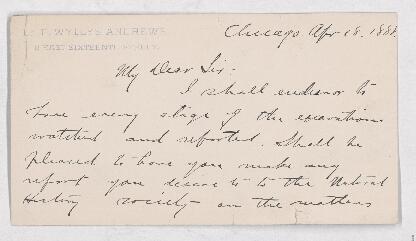 E. WYLLYS ANDREWS
EAST SIXTEENTH STREET.
Chicago Apr 18. 1888.
My Dear Sir:
I shall endeavor to
have every stage of the excavations
watched and reported. Shall be
pleased to have you make any
report you desire to to the Natural
History society on the matters